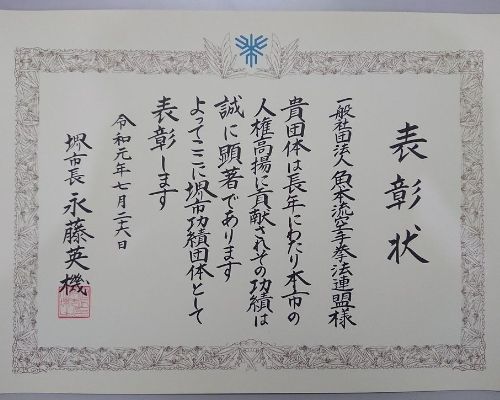 表彰状
一般社団法人 魚本流空手拳法連盟様
貴団体は長年にわたり本市の
人権高揚に貢献されその功績は
誠に顕著であります
よってここに堺市功績団体として
表彰します
令和元年七月二六日
堺市長 永藤英機